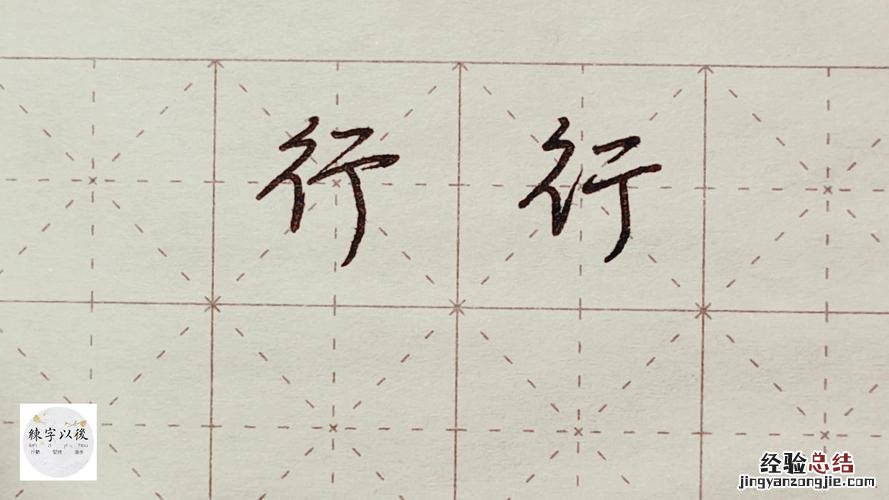 行 行
練字以後
经验总结
jingyanzongjie.com